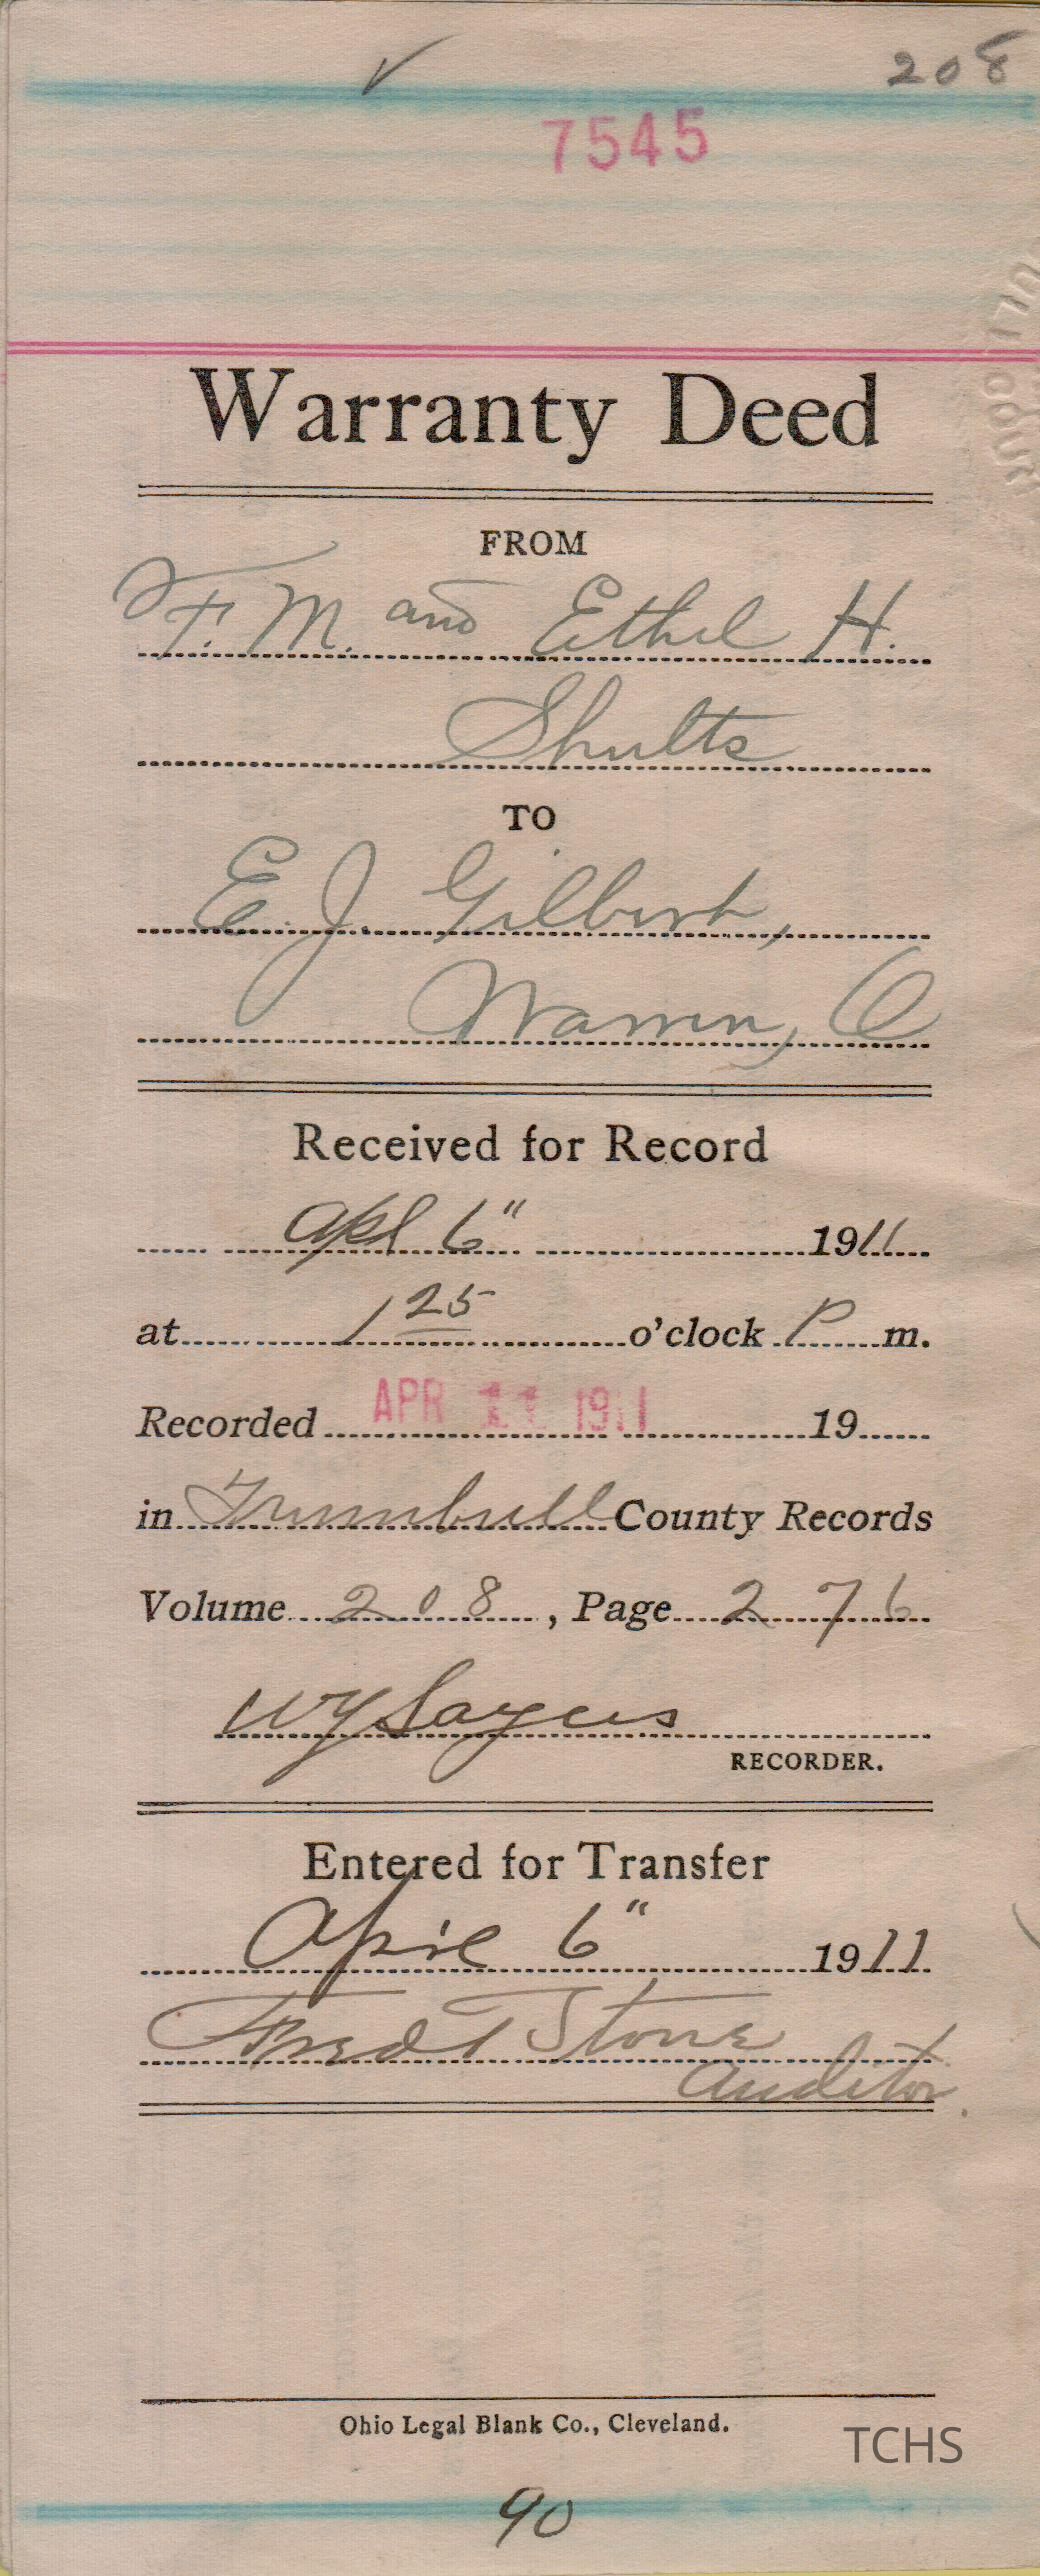 ✓ 208
7545
Warranty Deed
FROM
F. M. and Ethel H.
Shults
TO
E. J. Gilbert,
Warren, O
Received for Record
Apl 6" 1911
at 1 25 o'clock P m.
Recorded APR 11 1911 19
in Trumbull County Records
Volume 208, Page 276
W Y Sayers
RECORDER.
Entered for Transfer
April 6" 1911
Fred T Stone
Auditor.
Ohio Legal Blank Co., Cleveland.
TCHS
90